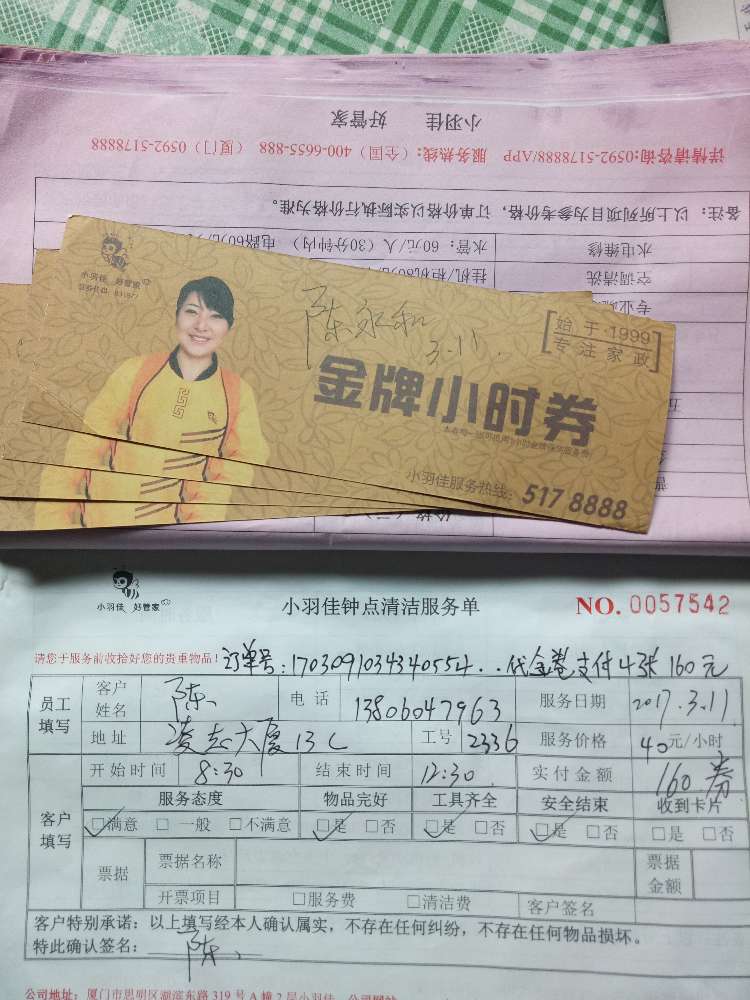 小羽佳 好管家
详情请咨询:0592-5178888/APP 服务热线:(全国)400-6655-888 (厦门)0592-5178888
备注:以上所列项目为参考价格,订单价格以实际执行价格为准。
水电维修 水管:60元/人(30分钟内) 电路60元/
空调清洗 挂机/柜机80
小羽佳 好管家
股份代码 831977
陈永和
3.11.
始于·1999
专注家政
金牌小时券
小羽佳服务热线:517 8888
小羽佳 好管家
小羽佳钟点清洁服务单
NO. 0057542
请您于服务前收拾好您的贵重物品!
订单号:1703091034340554..代金卷支付4张160元
员工填写 客户姓名 陈、 电话 13806047963 服务日期 2017.3.11
地址 凌志大厦13C 工号 2336 服务价格 40元/小时
开始时间 8:30 结束时间 12:30 实付金额 160券
客户填写 服务态度 物品完好 工具齐全 安全结束 收到卡片
☑满意 □一般 □不满意 ☑是 □否 ☑是 □否 ☑是 □否 □是 □否
票据 票据名称 票据金额
开票项目 □服务费 □清洁费 客户签名
客户特别承诺:以上填写经本人确认属实,不存在任何纠纷,不存在任何物品损坏。
特此确认签名: 陈、
公司地址:厦门市思明区湖滨东路319号A幢2层小羽佳